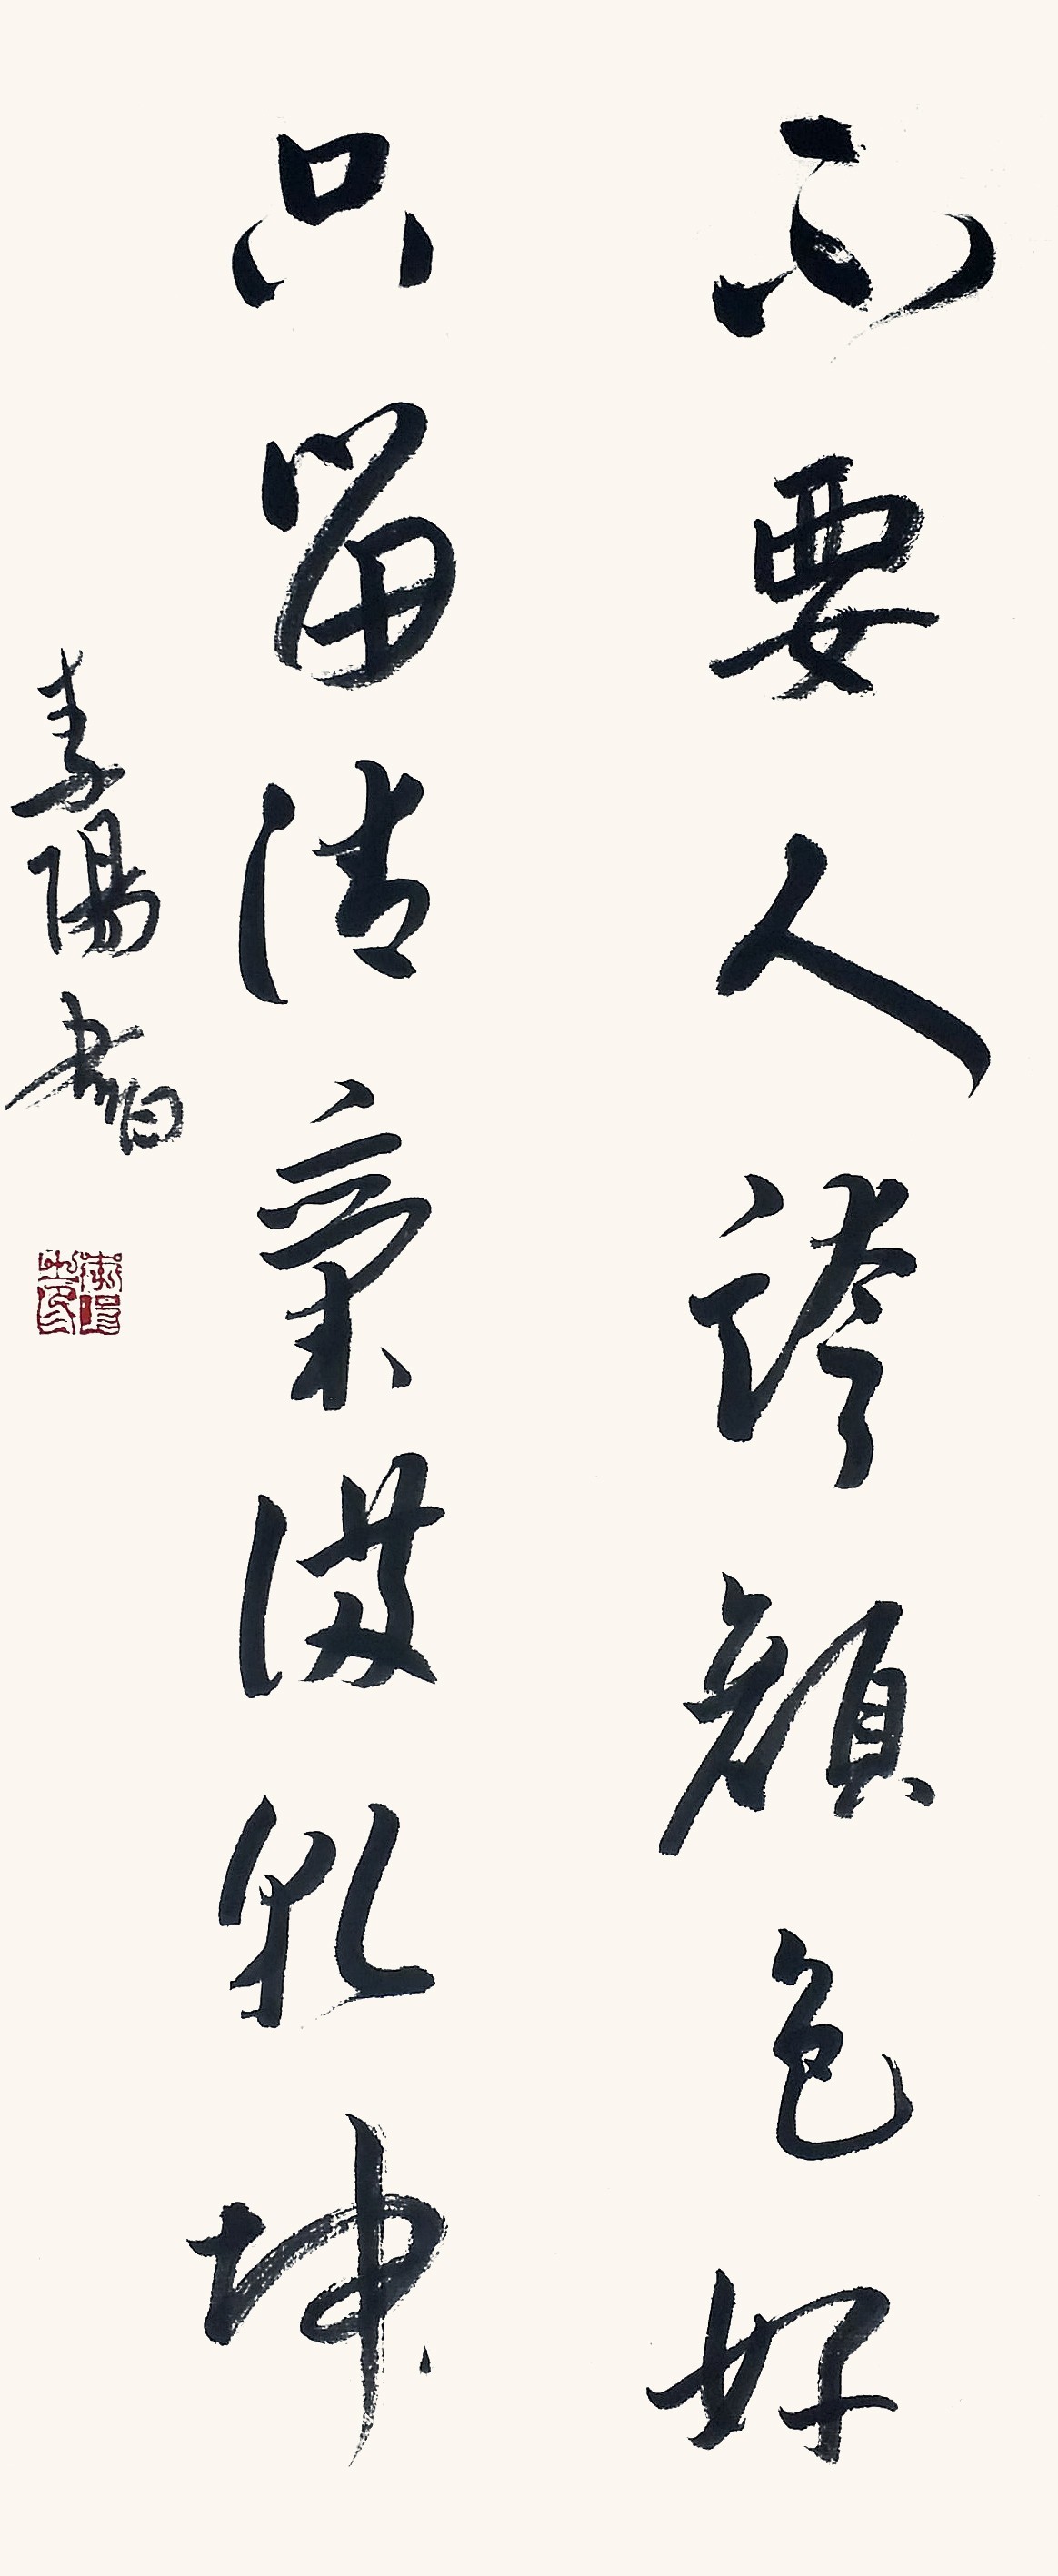 不要人誇顏色好
只留清氣滿乾坤
陽書